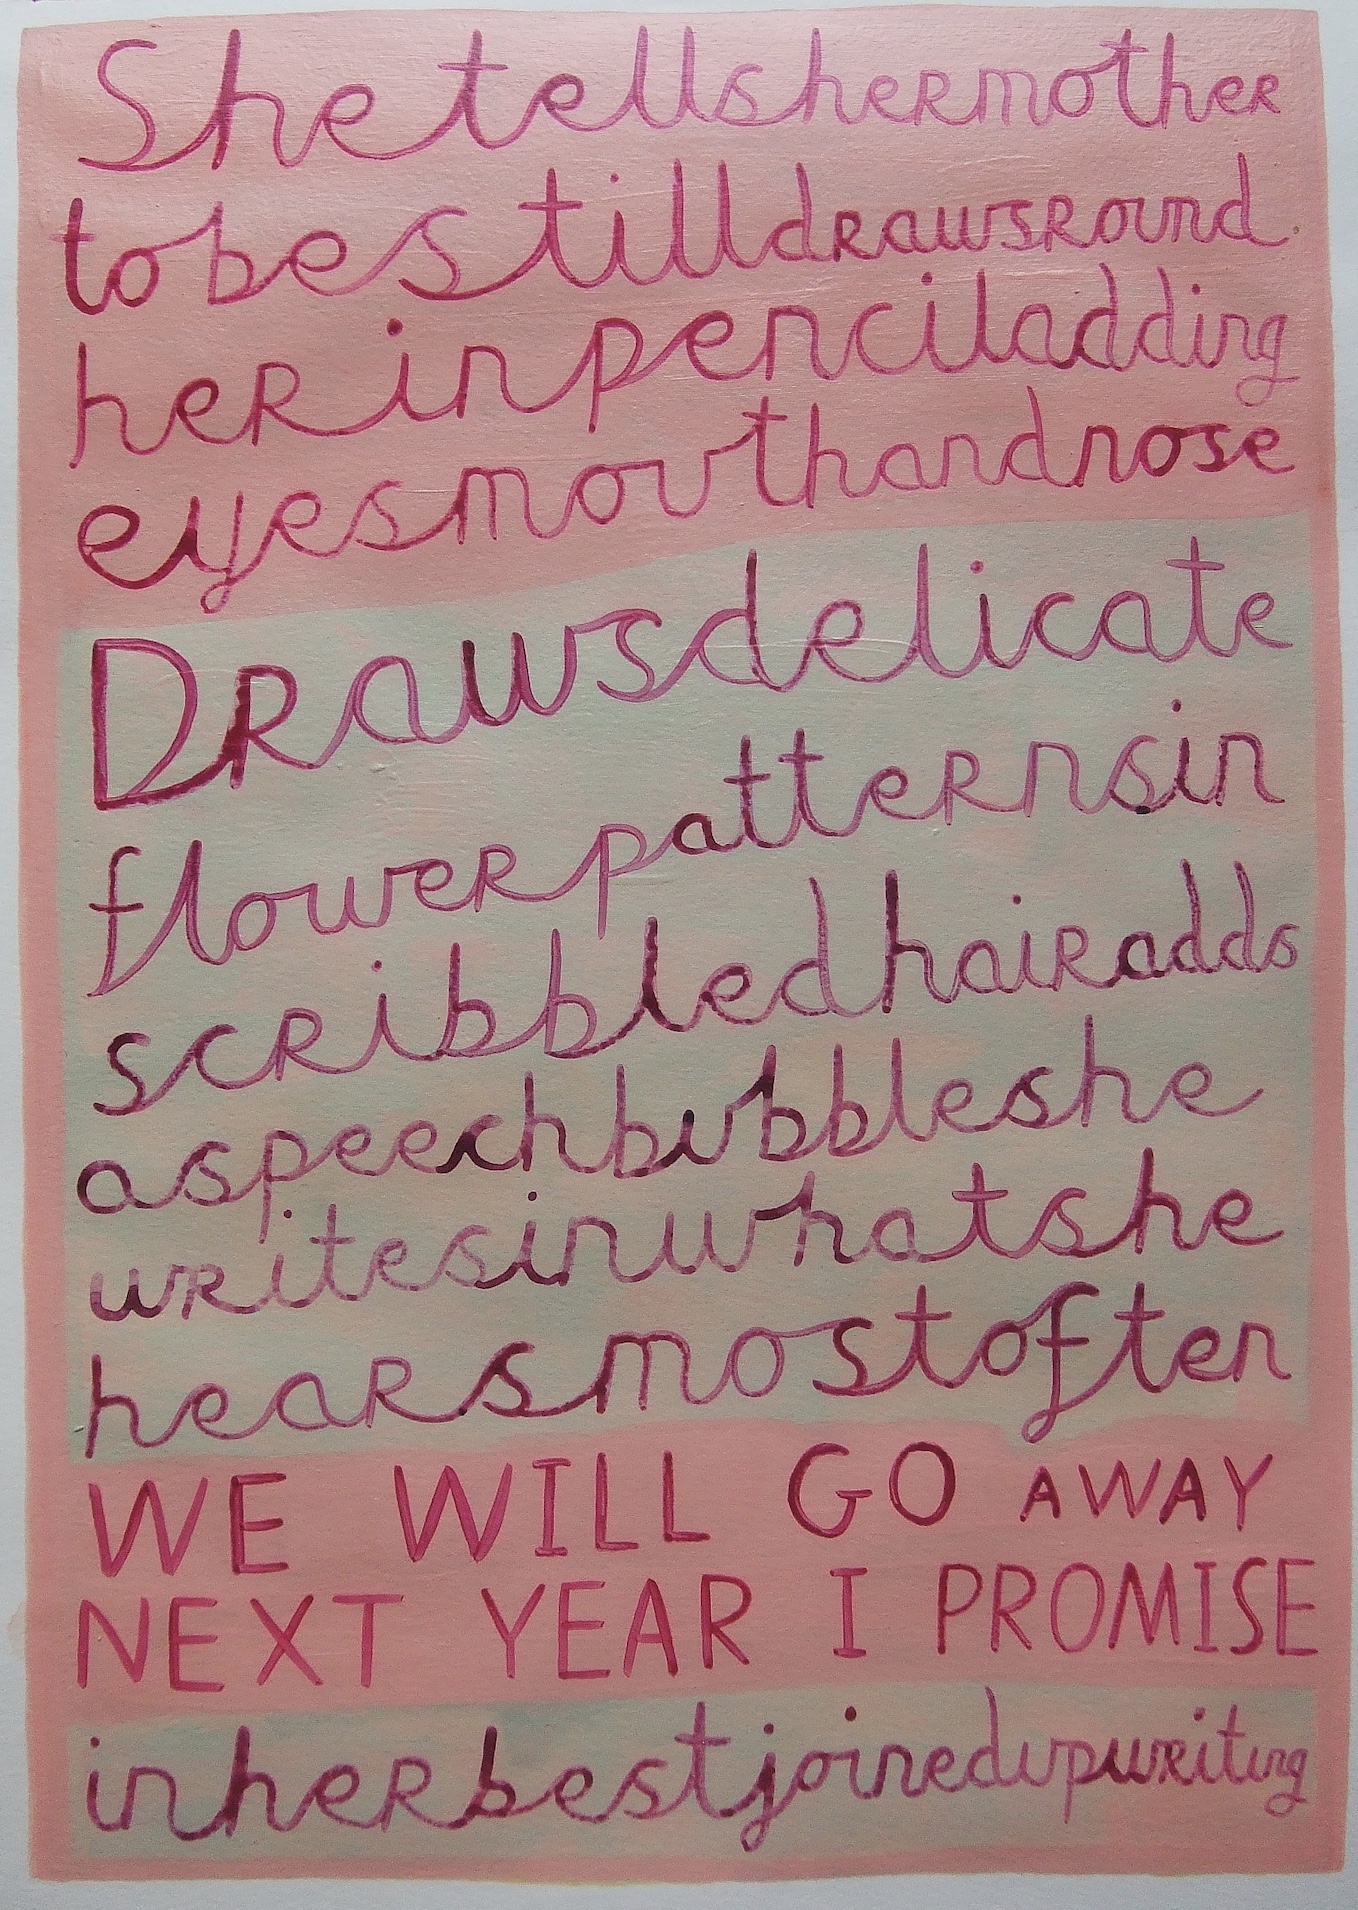 Shetellshermother
tobestilldrawsround
herinpenciladding
eyesmouthandnose
Drawsdelicate
flowerpatternsin
scribbledhairadds
aspeechbubbleshe
writesinwhatshe
hearsmostoften
WE WILL GO AWAY
NEXT YEAR I PROMISE
inherbestjoinedupwriting